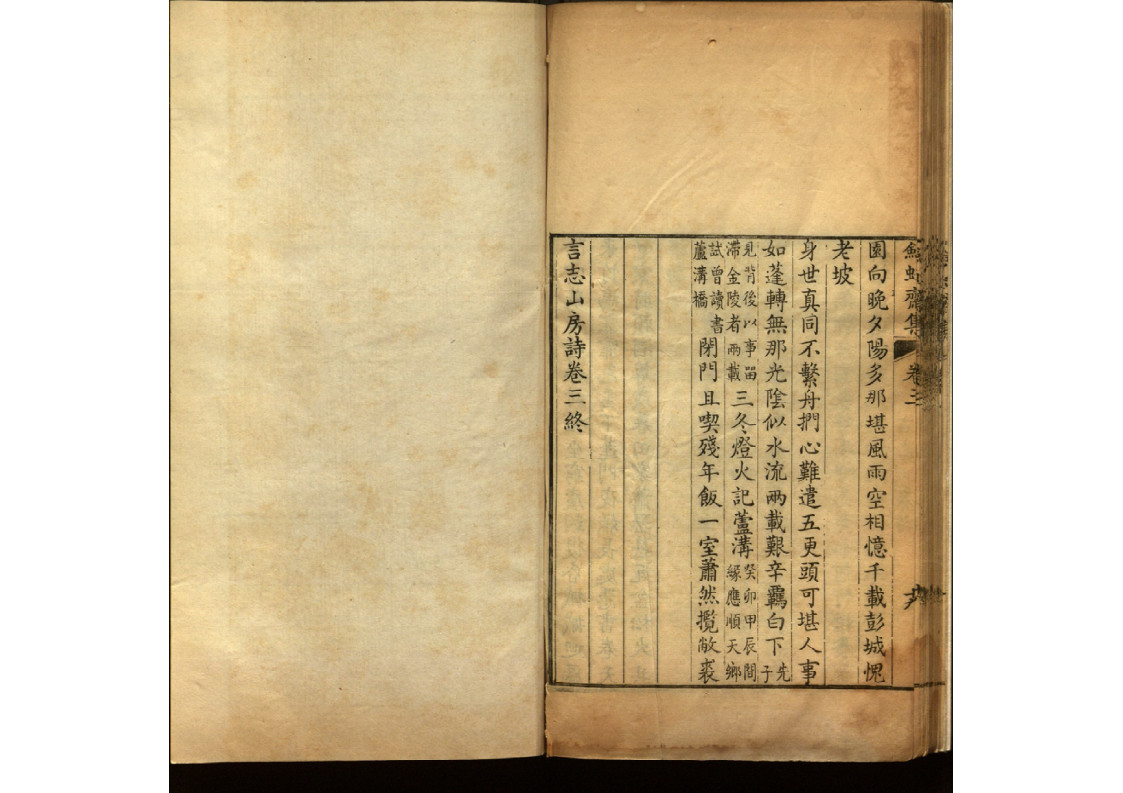 虬齋集 卷三
園向晚夕陽多那堪風雨空相憶千載彭城愧
老坡
身世真同不繫舟捫心難遣五更頭可堪人事
如蓬轉無那光陰似水流兩載艱辛羈白下先子
見背後以事畱滯金陵者兩載三冬燈火記蘆溝癸卯甲辰間緣應順天鄉
試曾讀書蘆溝橋閉門且喫殘年飯一室蕭然攬敝裘
言志山房詩卷三終